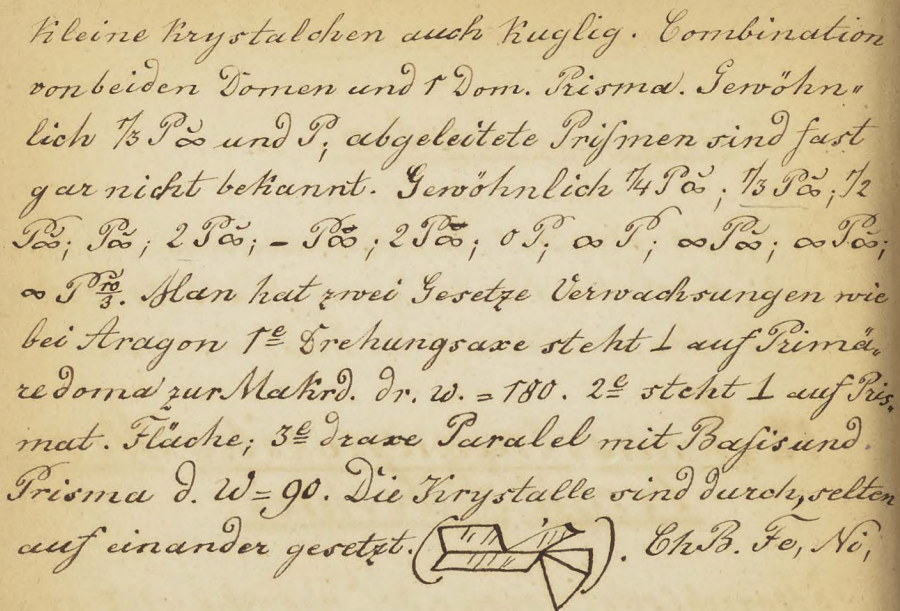 Kleine Krystalchen auch Kuglig. Combination
von beiden Domen und 1 Dom. Prisma. Gewöhn-
lich 1/3 P∞̆ und P; abgeleitete Prismen sind fast
gar nicht bekannt. Gewöhnlich 1/4 P∞̆; 1/3 P∞̆; 1/2
P∞̆; P∞̆; 2 P∞̆; - P∞̄; 2 P∞̄; 0 P; ∞ P; ∞ P∞̆; ∞ P∞̆;
∞ P 10/3. Man hat zwei Gesetze Verwachsungen wie
bei Aragon 1e Drehungsaxe steht ⊥ auf Primä-
redoma zur Makrd. dr. w. = 180. 2e steht ⊥ auf Pris-
mat. Fläche; 3e draxe Paralel mit Basis und
Prisma d. W = 90. Die Krystalle sind durch, selten
auf einander gesetzt. ( ). Ch B. Fe, Ni,